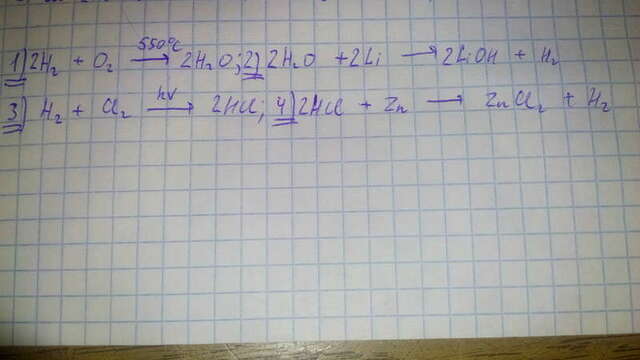 1) 2H₂ + O₂ —550°C→ 2H₂O; 2) 2H₂O + 2Li → 2LiOH + H₂
3) H₂ + Cl₂ —hν→ 2HCl; 4) 2HCl + Zn → ZnCl₂ + H₂